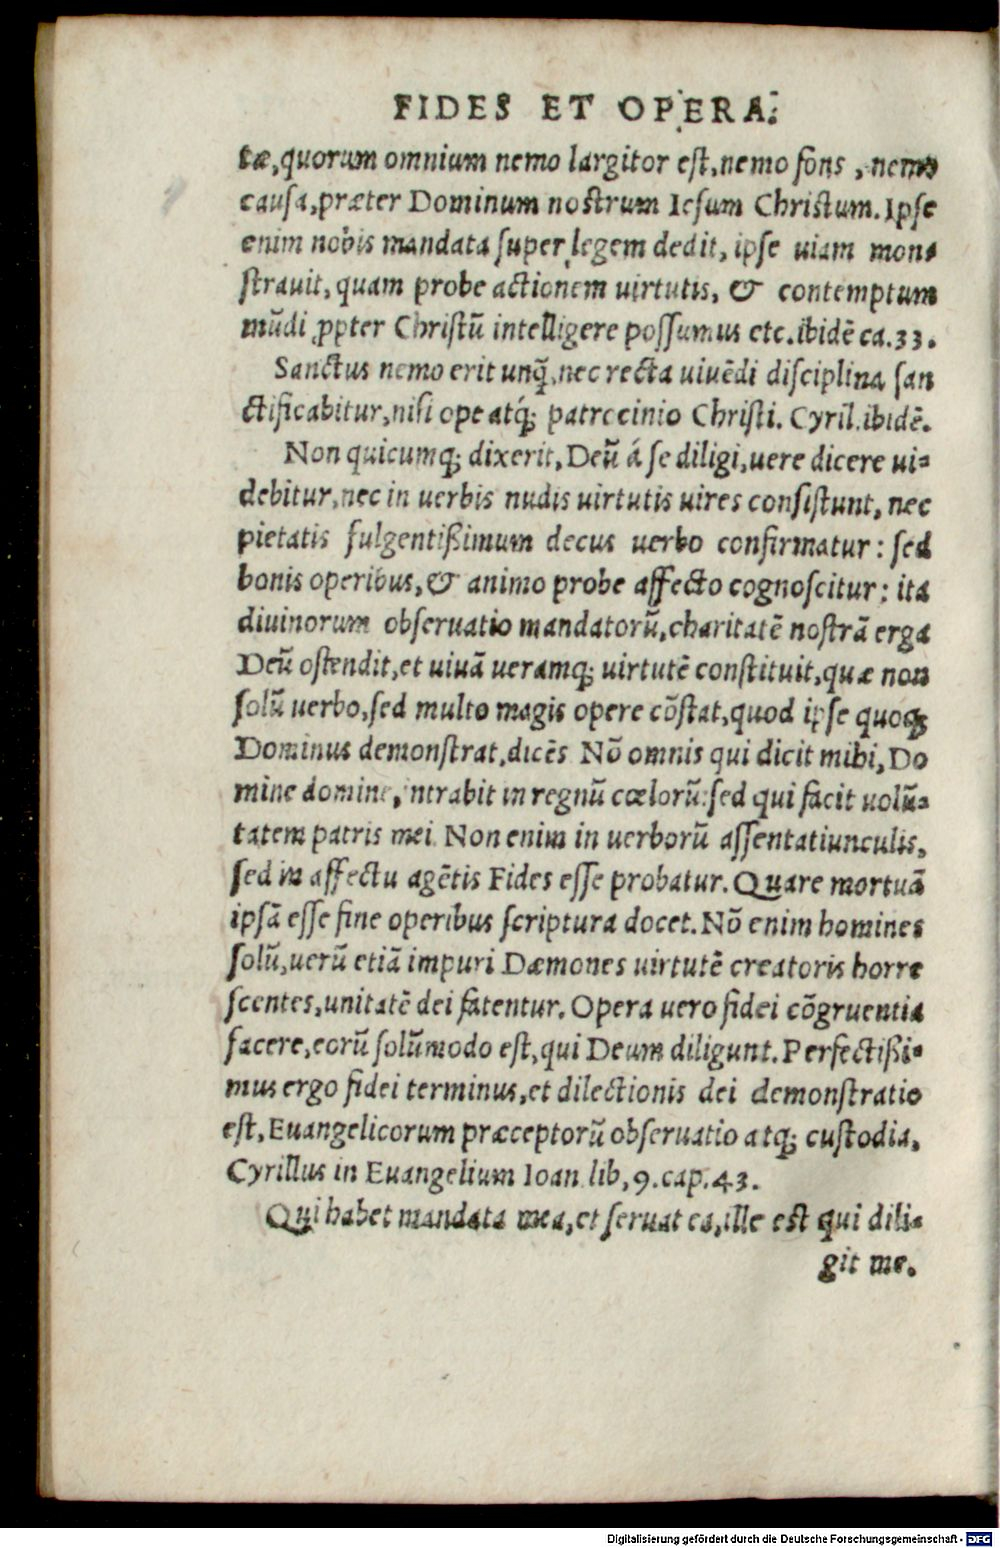 FIDES ET OPERA.
tæ, quorum omnium nemo largitor est, nemo fons, nemo
causa, præter Dominum nostrum Iesum Christum. Ipse
enim nobis mandata super legem dedit, ipse uiam mon⸗
strauit, quam probe actionem uirtutis, & contemptum
mūdi ꝓpter Christū intelligere possumus etc. ibidē ca. 33.
Sanctus nemo erit unq̄, nec recta uiuēdi disciplina san
ctificabitur, nisi ope atq́; patrocinio Christi. Cyril. ibidē.
Non quicumq; dixerit, Deū á se diligi, uere dicere ui⸗
debitur, nec in uerbis nudis uirtutis uires consistunt, nec
pietatis fulgentißimum decus uerbo confirmatur: sed
bonis operibus, & animo probe affecto cognoscitur: ita
diuinorum obseruatio mandatorū, charitatē nostrā erga
Deū ostendit, et uiuā ueramq; uirtutē constituit, quæ non
solū uerbo, sed multo magis opere cōstat, quod ipse quoq;
Dominus demonstrat, dicēs Nō omnis qui dicit mihi, Do
mine domine, ntrabit in regnū cœlorū: sed qui facit uolū⸗
tatem patris mei. Non enim in uerborū assentatiunculis,
sed in affectu agētis Fides esse probatur. Quare mortuā
ipsā esse sine operibus scriptura docet. Nō enim homines
solū, uerū etiā impuri Dæmones uirtutē creatoris horre
scentes, unitatē dei fatentur. Opera uero fidei cōgruentia
facere, eorū solūmodo est, qui Deum diligunt. Perfectißi⸗
mus ergo fidei terminus, et dilectionis dei demonstratio
est, Euangelicorum præceptorū obseruatio atq; custodia.
Cyrillus in Euangelium Ioan. lib, 9. cap. 43.
Qui habet mandata mea, et seruat ea, ille est qui dili⸗
git me.
Digitalisierung gefördert durch die Deutsche Forschungsgemeinschaft - DFG